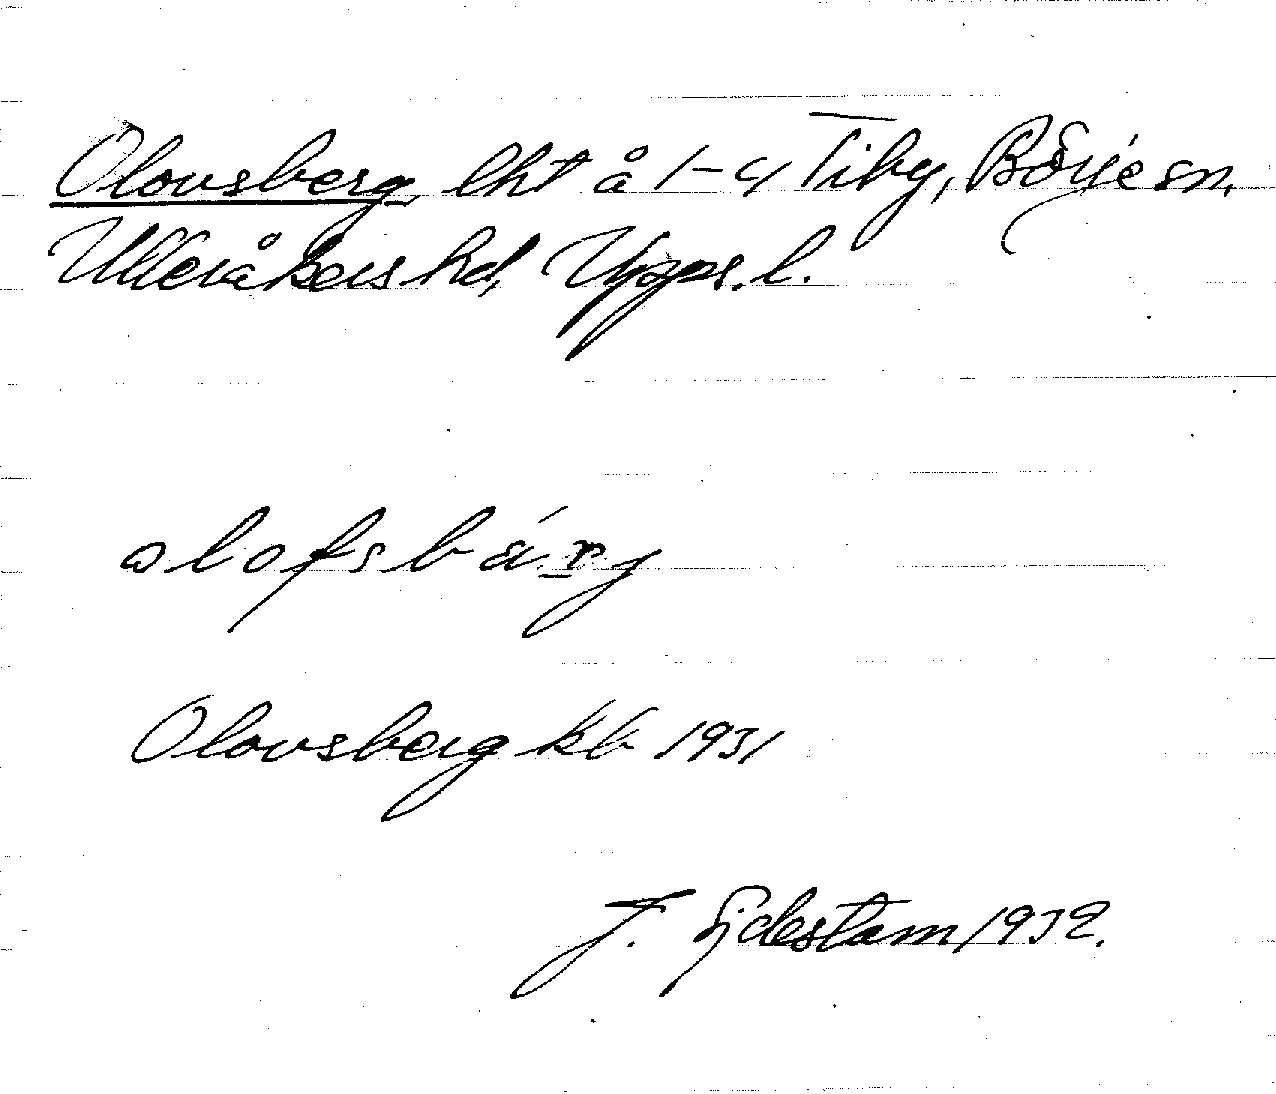 Olovsberg, lht å 1-4 Tiby, Börje sn,
Ulleråkers hd, Upps. l.
olofsbárj
Olovsberg kb 1931
F. Hjdestam 1932.